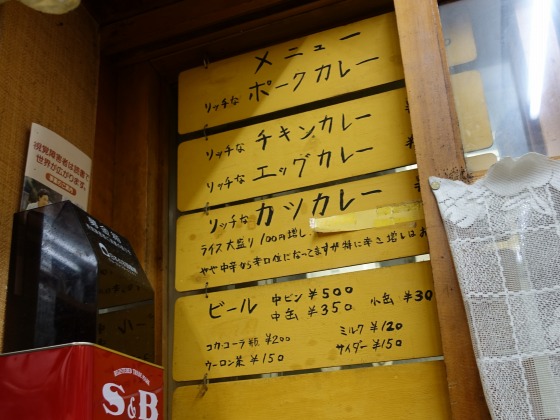 メニュー
リッチな ポークカレー
リッチな チキンカレー
リッチな エッグカレー
リッチな カツカレー
ライス大盛り100円増し
やや中辛から辛口位になってますが特に辛さ増しはお
ビール 中ビン ¥500
中缶 ¥350 小缶 ¥30
コカ・コーラ瓶 ¥200 ミルク ¥120
ウーロン茶 ¥150 サイダー ¥150
視覚障害者は読書で
世界が広がります。
S&B